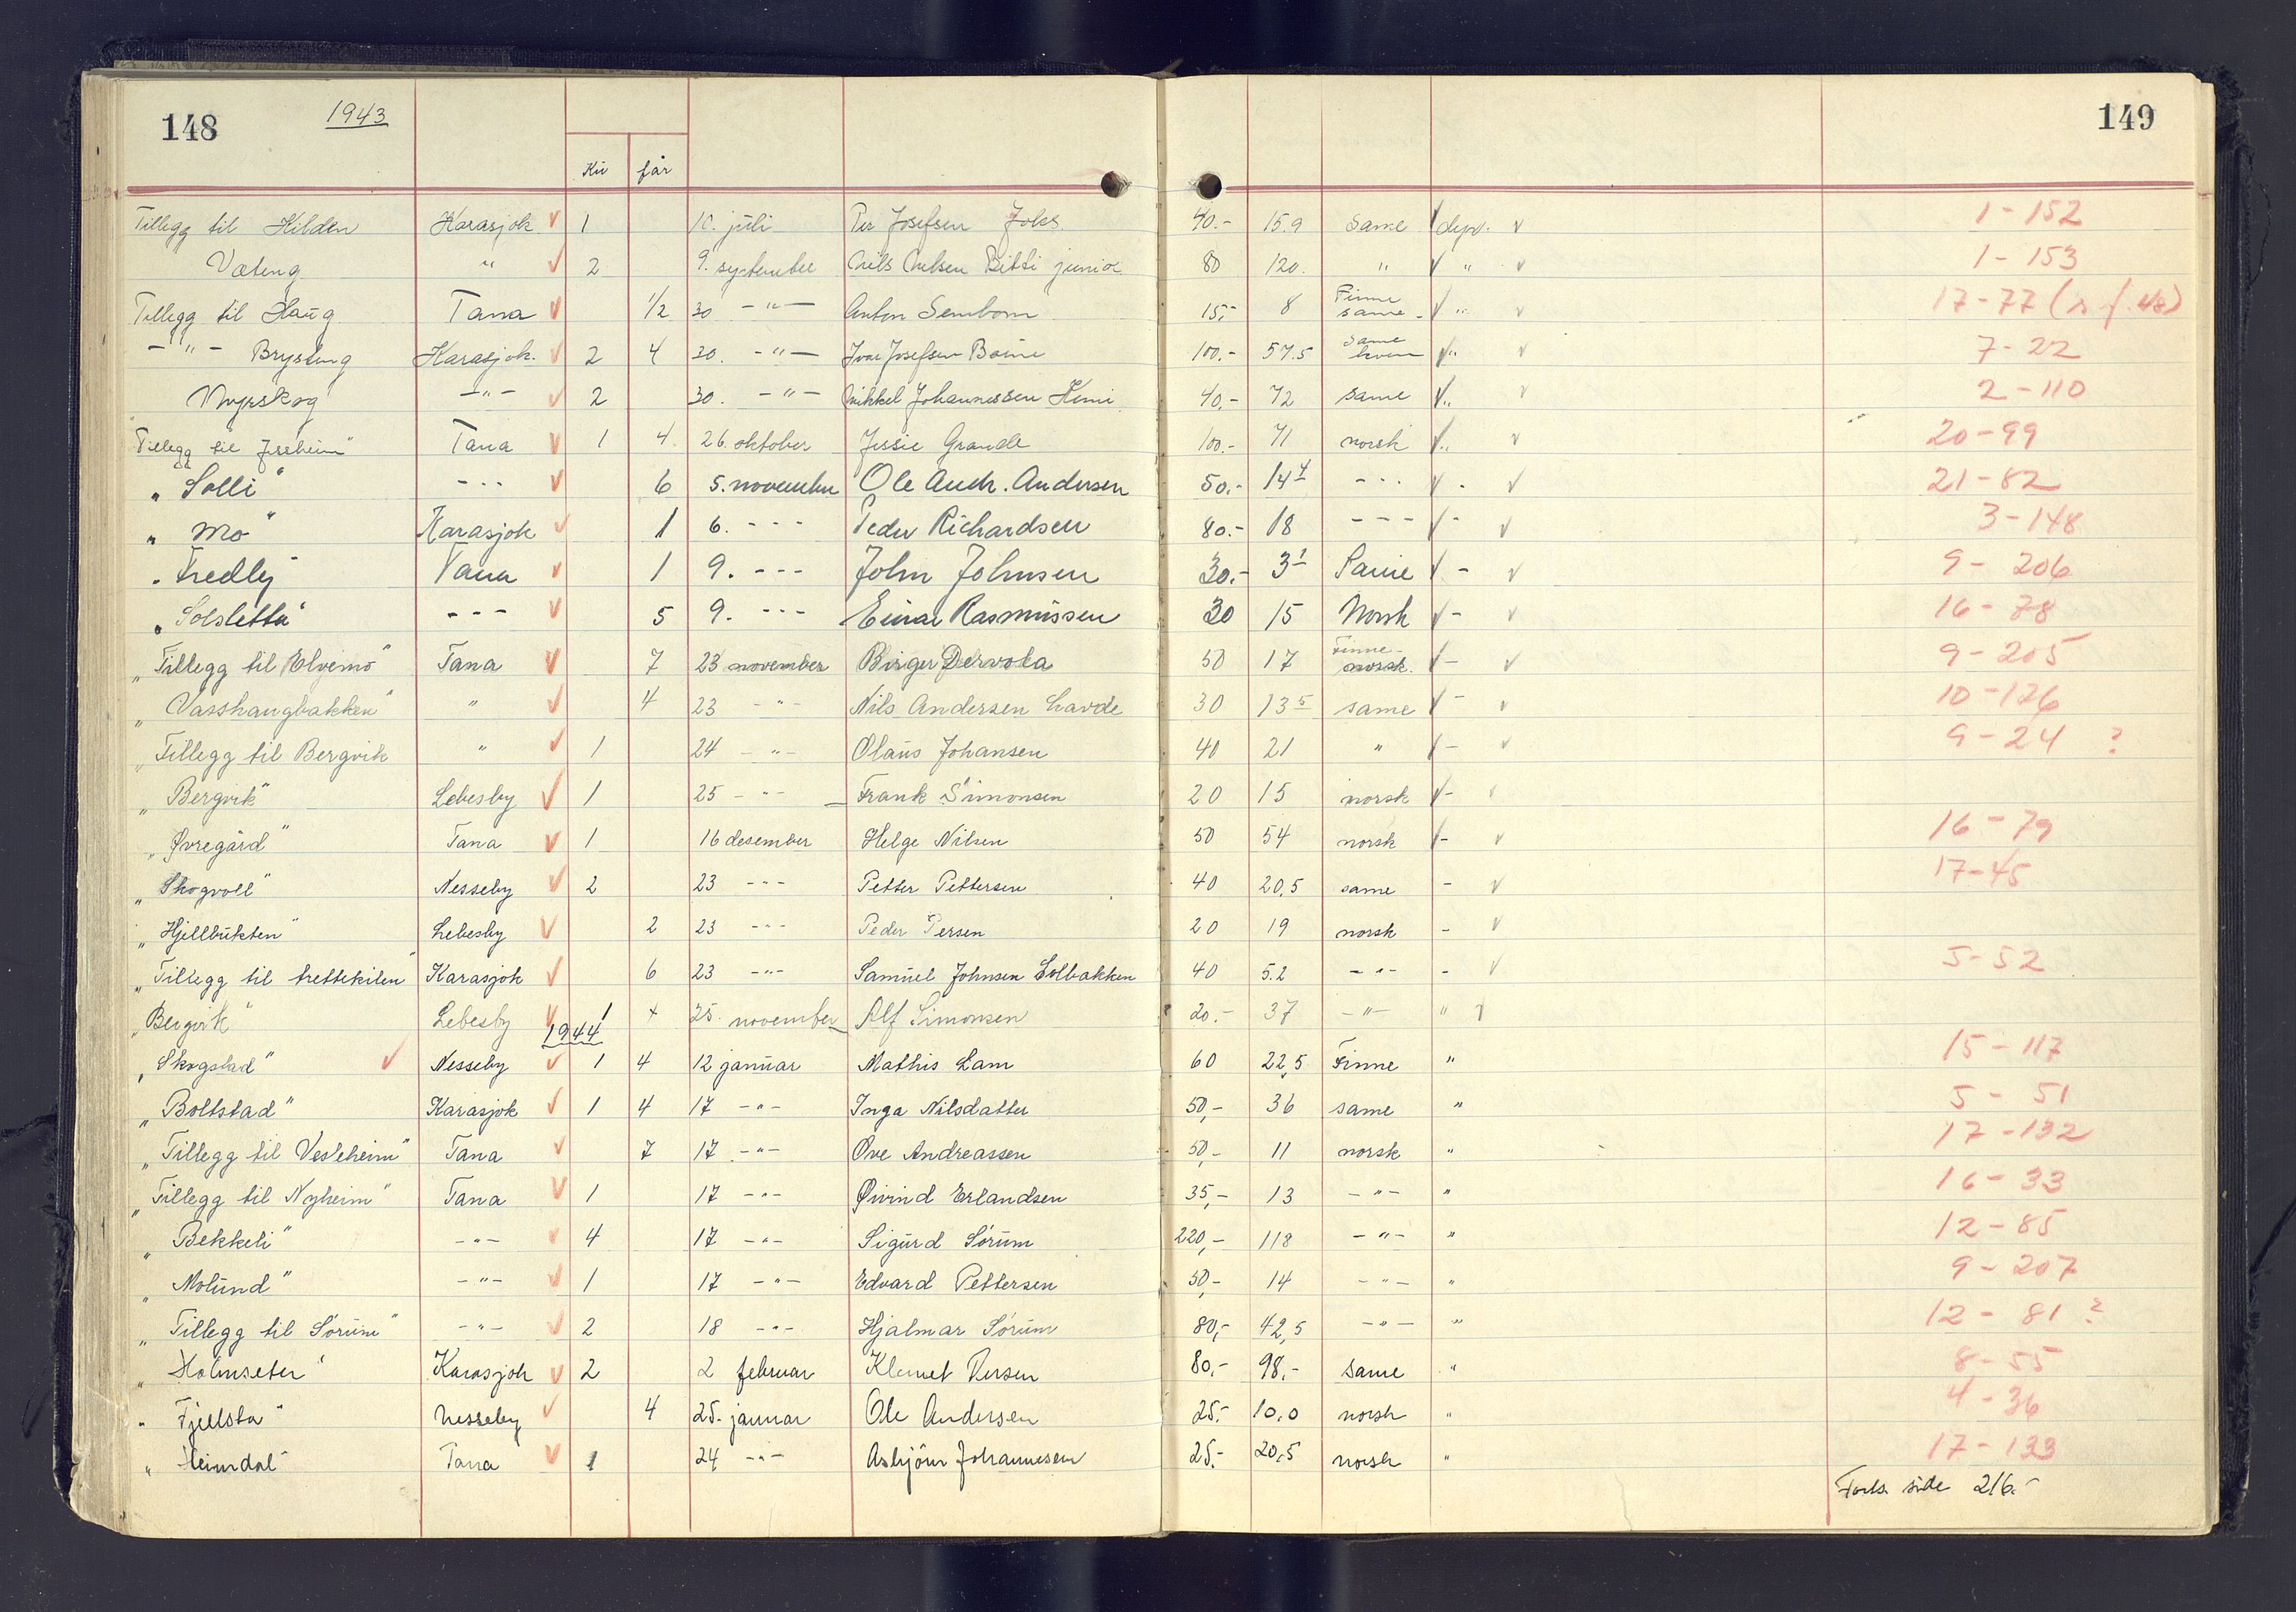 148 1943 149
Ku får
Tillegg til Hilden Karasjok √ 1 10. juli Per Josefsen Joks 40.- 15.9 same √ depv. √ 1-152
Vateng " √ 2 9. september Nils Nilsen Bitti junior 80 120. " √ " √ 1-153
Tillegg til Haug Tana √ 1/2 30 -"- Anton Sembom 15,- 8 Finne same - √ " √ 17-77 (s.f. 48)
-"- Brysteng Karasjok. √ 2 4 30. -"- Ivar Josefsen Boine 100.- 57.5 same kven √ " √ 7-22
Myrskog -"- √ 2 30. -"- Mikkel Johannessen Kemi 40,- 72 same √ " √ 2-110
Tillegg til Jessheim" Tana √ 1 4. 26. oktober Jessie Grande 100.- 71 norsk √ " √ 20-99
" Solli" - - - √ 6 5. november Ole Andr. Andersen 50.- 14 4 - - - √ - √ 21-82
" Mo" Karasjok √ 1 6. - - - Peder Richardsen 80.- 18 - - - √ - √ 3-148
" Fredly Tana √ 1 9. - - - John Johnsen 30.- 3 1 Same √ - √ 9-206
" Solsletta" - - - √ 5 9. - - - Einar Rasmussen 30 15 Norsk √ - √ 16-78
" Tillegg til Elvemo" Tana √ 7 23 november Birger Dervola 50 17 Finne- norsk. √ - √ 9-205
" Vasshaugbakken" " √ 4 23 -"- Nils Andersen Lavde 30 13 5 same √ - √ 10-126
" Tillegg til Bergvik " √ 1 24 -"- Olaus Johansen 40 21 " √ - √ 9-24 ?
" Bergvik" Lebesby √ 1 25 -"- Frank Simonsen 20 15 norsk √ - √
" Øvregård" Tana √ 1 16 desember Helge Nilsen 50 54 norsk √ - √ 16-79
" Skogvoll" Nesseby √ 2 23 -"- Petter Pettersen 40 20,5 same - √ 17-45
" Hjellbukten" Lebesby √ 2 23 -"- Peder Persen 20 19 norsk - √
" Tillegg til trettekilen" Karasjok √ 6 23 -"- Samuel Johnsen Solbakken 40 5.2 -"- - √ 5-52
" Bergvik" Lebesby √ 1 + 25. november Alf Simonsen 20.- 37 -"- " √
1944
" Skogstad" √ Nesseby √ 1 4 12 januar Mathis Lam 60 22,5 Finne " 15-117
" Boltstad" Karasjok √ 1 4 17 -"- Inga Nilsdatter 50,- 36 same " 5-51
" Tillegg til Vesleheim" Tana √ 7 17 -"- Ove Andreassen 50,- 11 norsk " 17-132
" Tillegg til Nyheim" Tana √ 1 17 -"- Øivind Erlandsen 35,- 13 -"- " 16-33
" Bekkeli" -"- √ 4 17 -"- Sigurd Sørum 220,- 118 -"- " 12-85
" Molund" -"- √ 1 17 -"- Edvard Pettersen 50,- 14 -"- " 9-207
" Tillegg til Sørum" -"- √ 2 18 -"- Hjalmar Sørum 80,- 42,5 -"- " 12-81 ?
" Holmseter" Karasjok √ 2 2 februar Klemet Persen 80.- 98.- same " 8-55
" Fjellsta" Nesseby √ 4 25. januar Ole Andersen 25.- 10,0 norsk " 4-36
" Heimdal" Tana √ 1 24 -"- Asbjørn Johannesen 25.- 20,5 norsk " 17-133
Forts. side 216.-